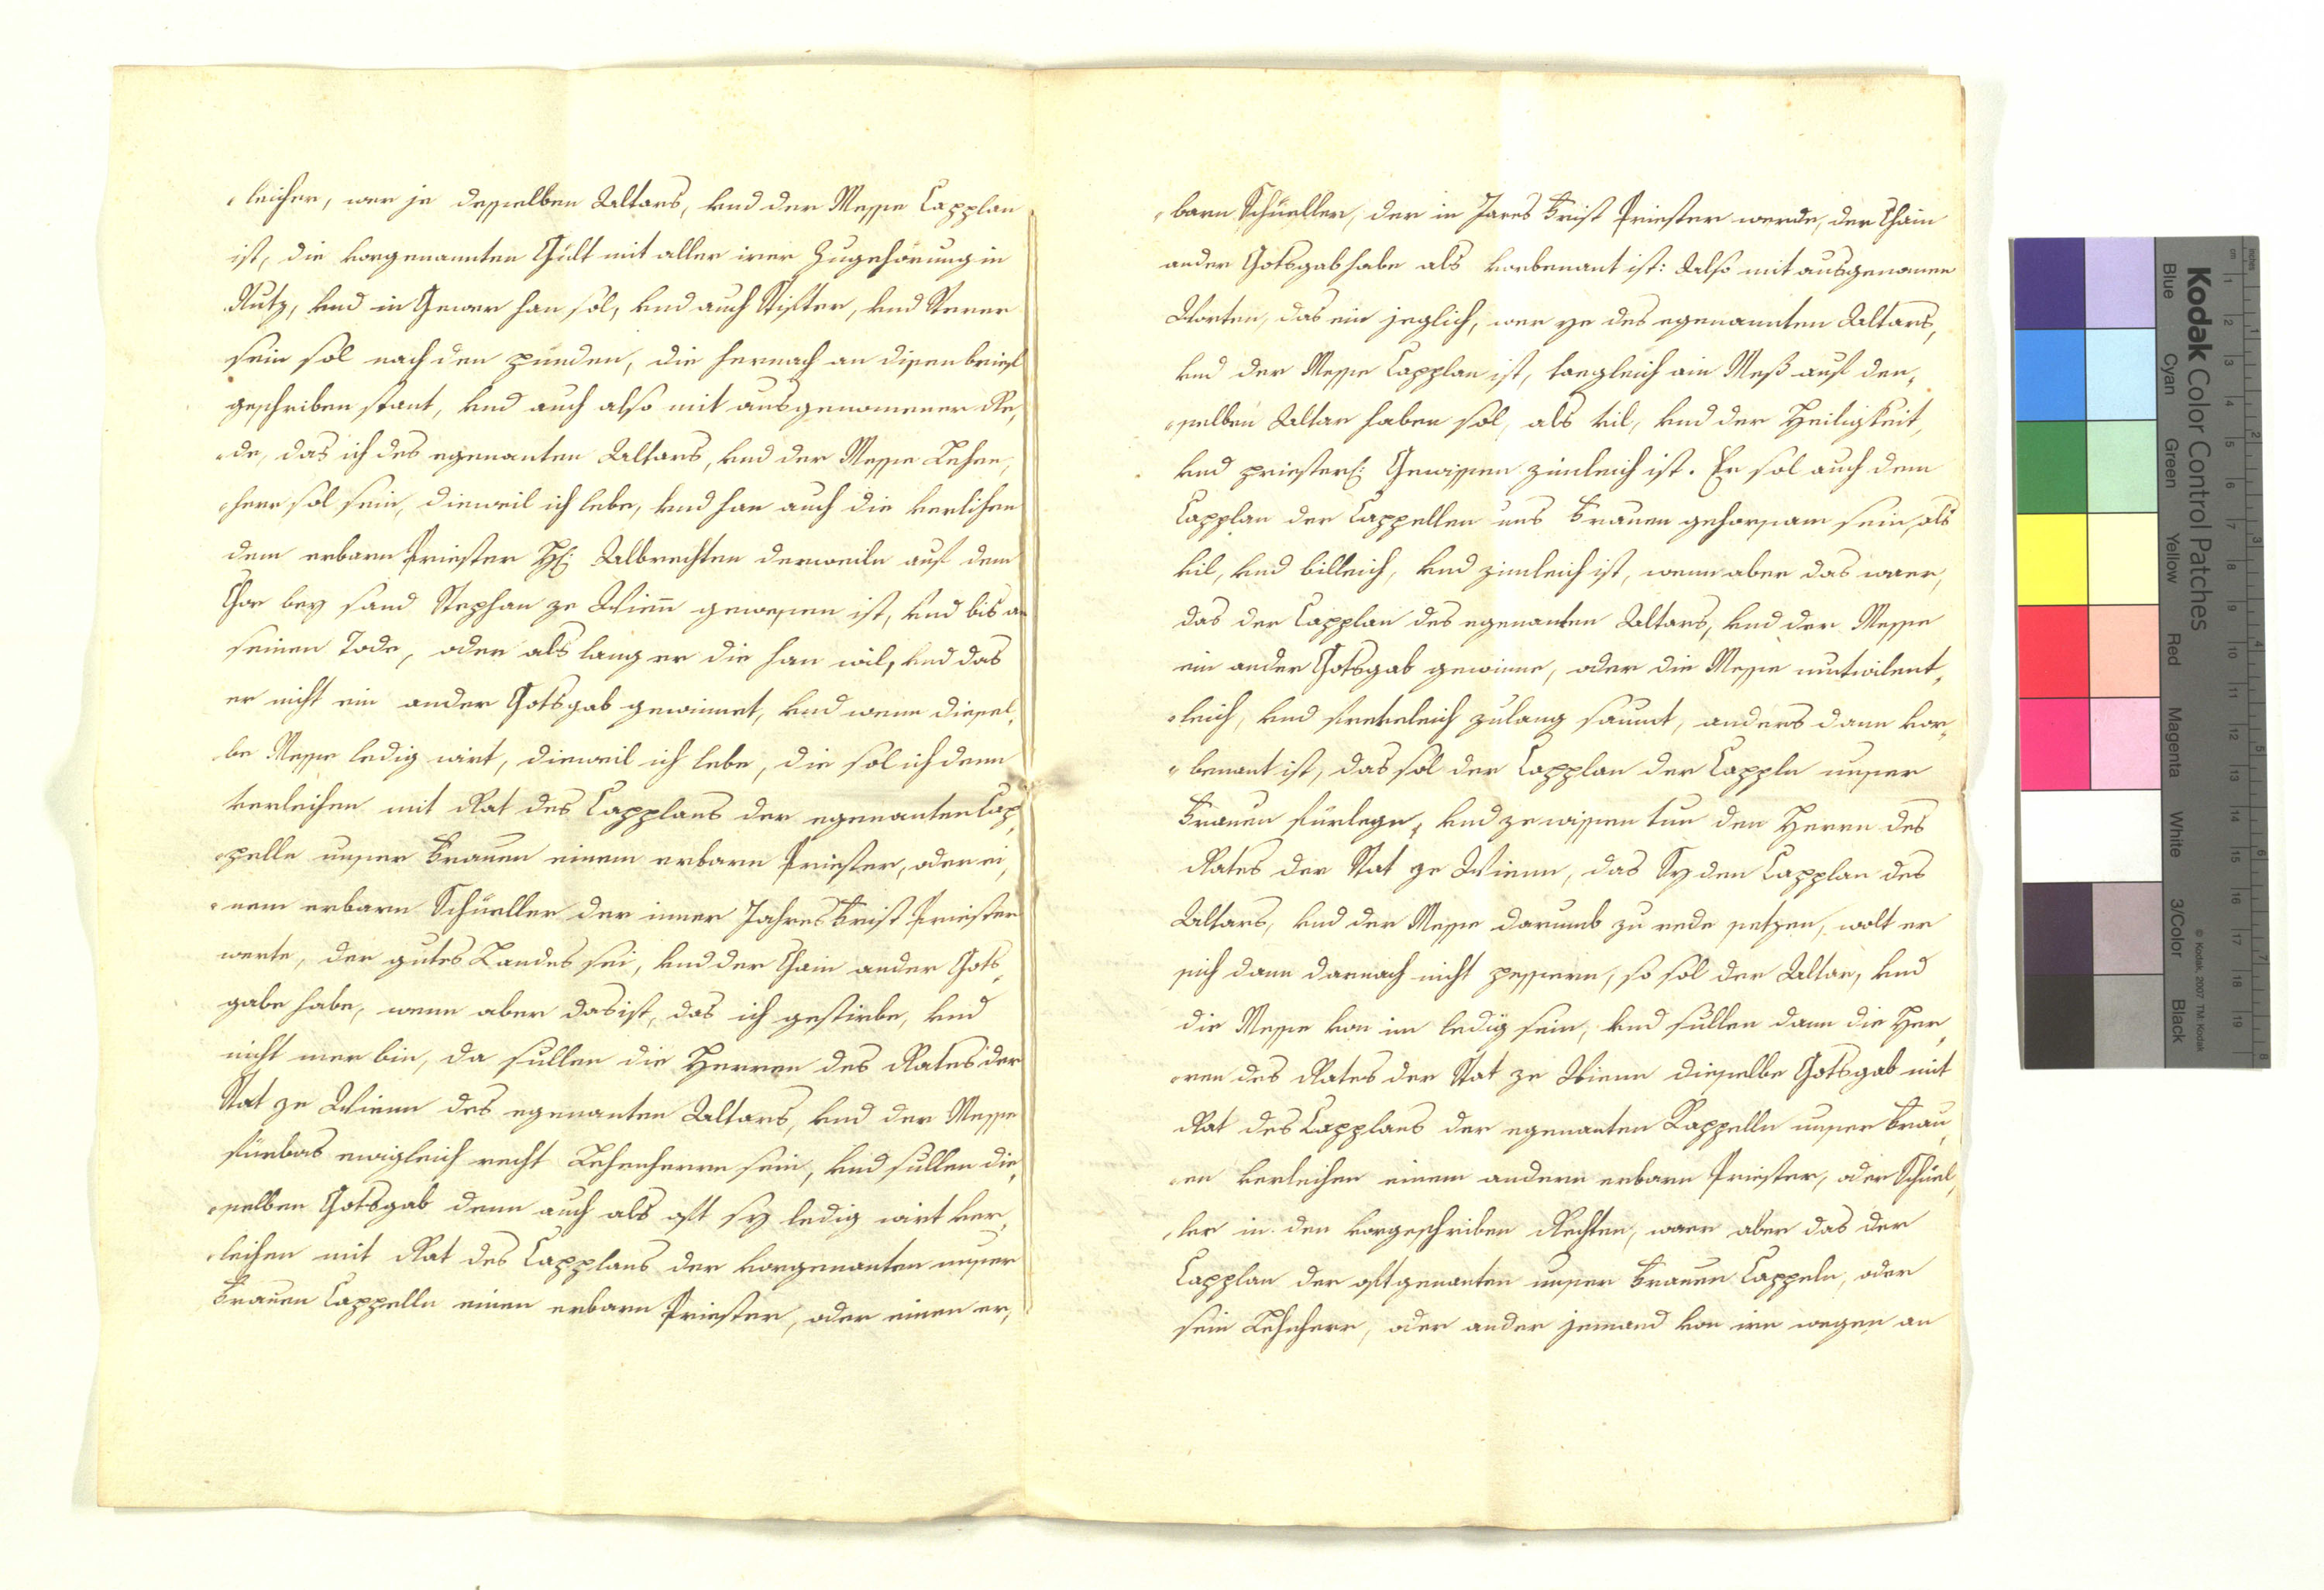 leicher, wer je desselben Altars, vnd der Messe Capplan
ist, die vorgenannten Gult mit aller irer Zugehörung in
Nutz, vnd in Gewer han sol, vnd auch Stifter, vnd Sterer
sein sol nach den punden, die hernach an disen brief
geschriben stant, vnd auch also mit ausgenomener Re,
de, das ich des egenanten Altars, vnd der Messe Lehen,
herr sol sein, dieweil ich lebe, vnd han auch die verlihen
dem erbarn Priester H: Albrechten derweiln auf dem
Chor bey sand Stephan ze Wienn gewesen ist, vnd bis an
seinen Tode, oder als lang er die han wil, vnd das
er nicht ein ander Gotsgab gewinnet, vnd wenn diesel,
be Messe ledig wirt, dieweil ich lebe, die sol ich denn
verleihen mit Rat des Capplans der egenanten Cap,
pelle unser Frauen einem erbarn Priester, oder ei,
nem erbarn Schueller der inner Jahres Frist Priester
werte, der gutes Landes sei, vnd der Chain ander Gots,
gabe habe, wenn aber das ist, das ich gestirbe, vnd
nicht mer bin, da sullen die Herren des Rates der
Stat ze Wienn des egenanten Altars, vnd der Messe
fürbas ewigleich recht Lehenherrn sein, vnd sullen die,
selben Gotsgab denn auch als oft sy ledig wirt ver,
leihen mit Rat des Capplans der vorgenanten unser
Frauen Cappelln einen erbarn Priester, oder einen er,
barn Schueller, der in Jares Frist Priester werde, der Chain
ander Gotsgab habe als vorbenant ist: Also mit ausgenomen
Worten, das ein jeglich, wer ye des egenannten Altars,
vnd der Messe Capplan ist, taegleich ain Meß auf dem,
selben Altar haben sol, als vil, vnd der Heiligkeit,
vnd priesterl: Gewissen zimleich ist. Er sol auch dem
Capplan der Cappellen uns Frauen gehorsam sein, als
vil, vnd billeich, vnd zimleich ist, wenn aber das waer,
das der Capplan des egenanten Altars, vnd der Messe
ein ander Gotsgab gewinne, oder die Messe mutwilent,
leich, vnd freveleich zulang saumt, anders dann vor,
benant ist, das sol der Capplan der Cappln unser
Frauen fürlegn, vnd ze wissen tun den Herrn des
Rates der Stat ze Wienn, das Sy den Capplan des
Altars, vnd der Messe darumb zu rede setzen, wolt er
sich dann darnach nicht pessern, so sol der Altar, vnd
die Messe von im ledig sein, vnd sullen dann die Her,
ren des Rates der Stat ze Wienn dieselbe Gotsgab mit
Rat des Capplans der egenanten Kappelln unser Frau,
en verleihen einem andern erbarn Priester, oder Schuel,
ler in den vorgeschriben Rechten, waer aber das der
Capplan der oftgenanten unser Frauen Cappeln, oder
sein Lehnherr, oder ander jemand von irn wegen an
Kodak Color Control Patches
Blue Cyan Green Yellow Red Magenta White 3/Color Black
© Kodak, 2007 TM: Kodak